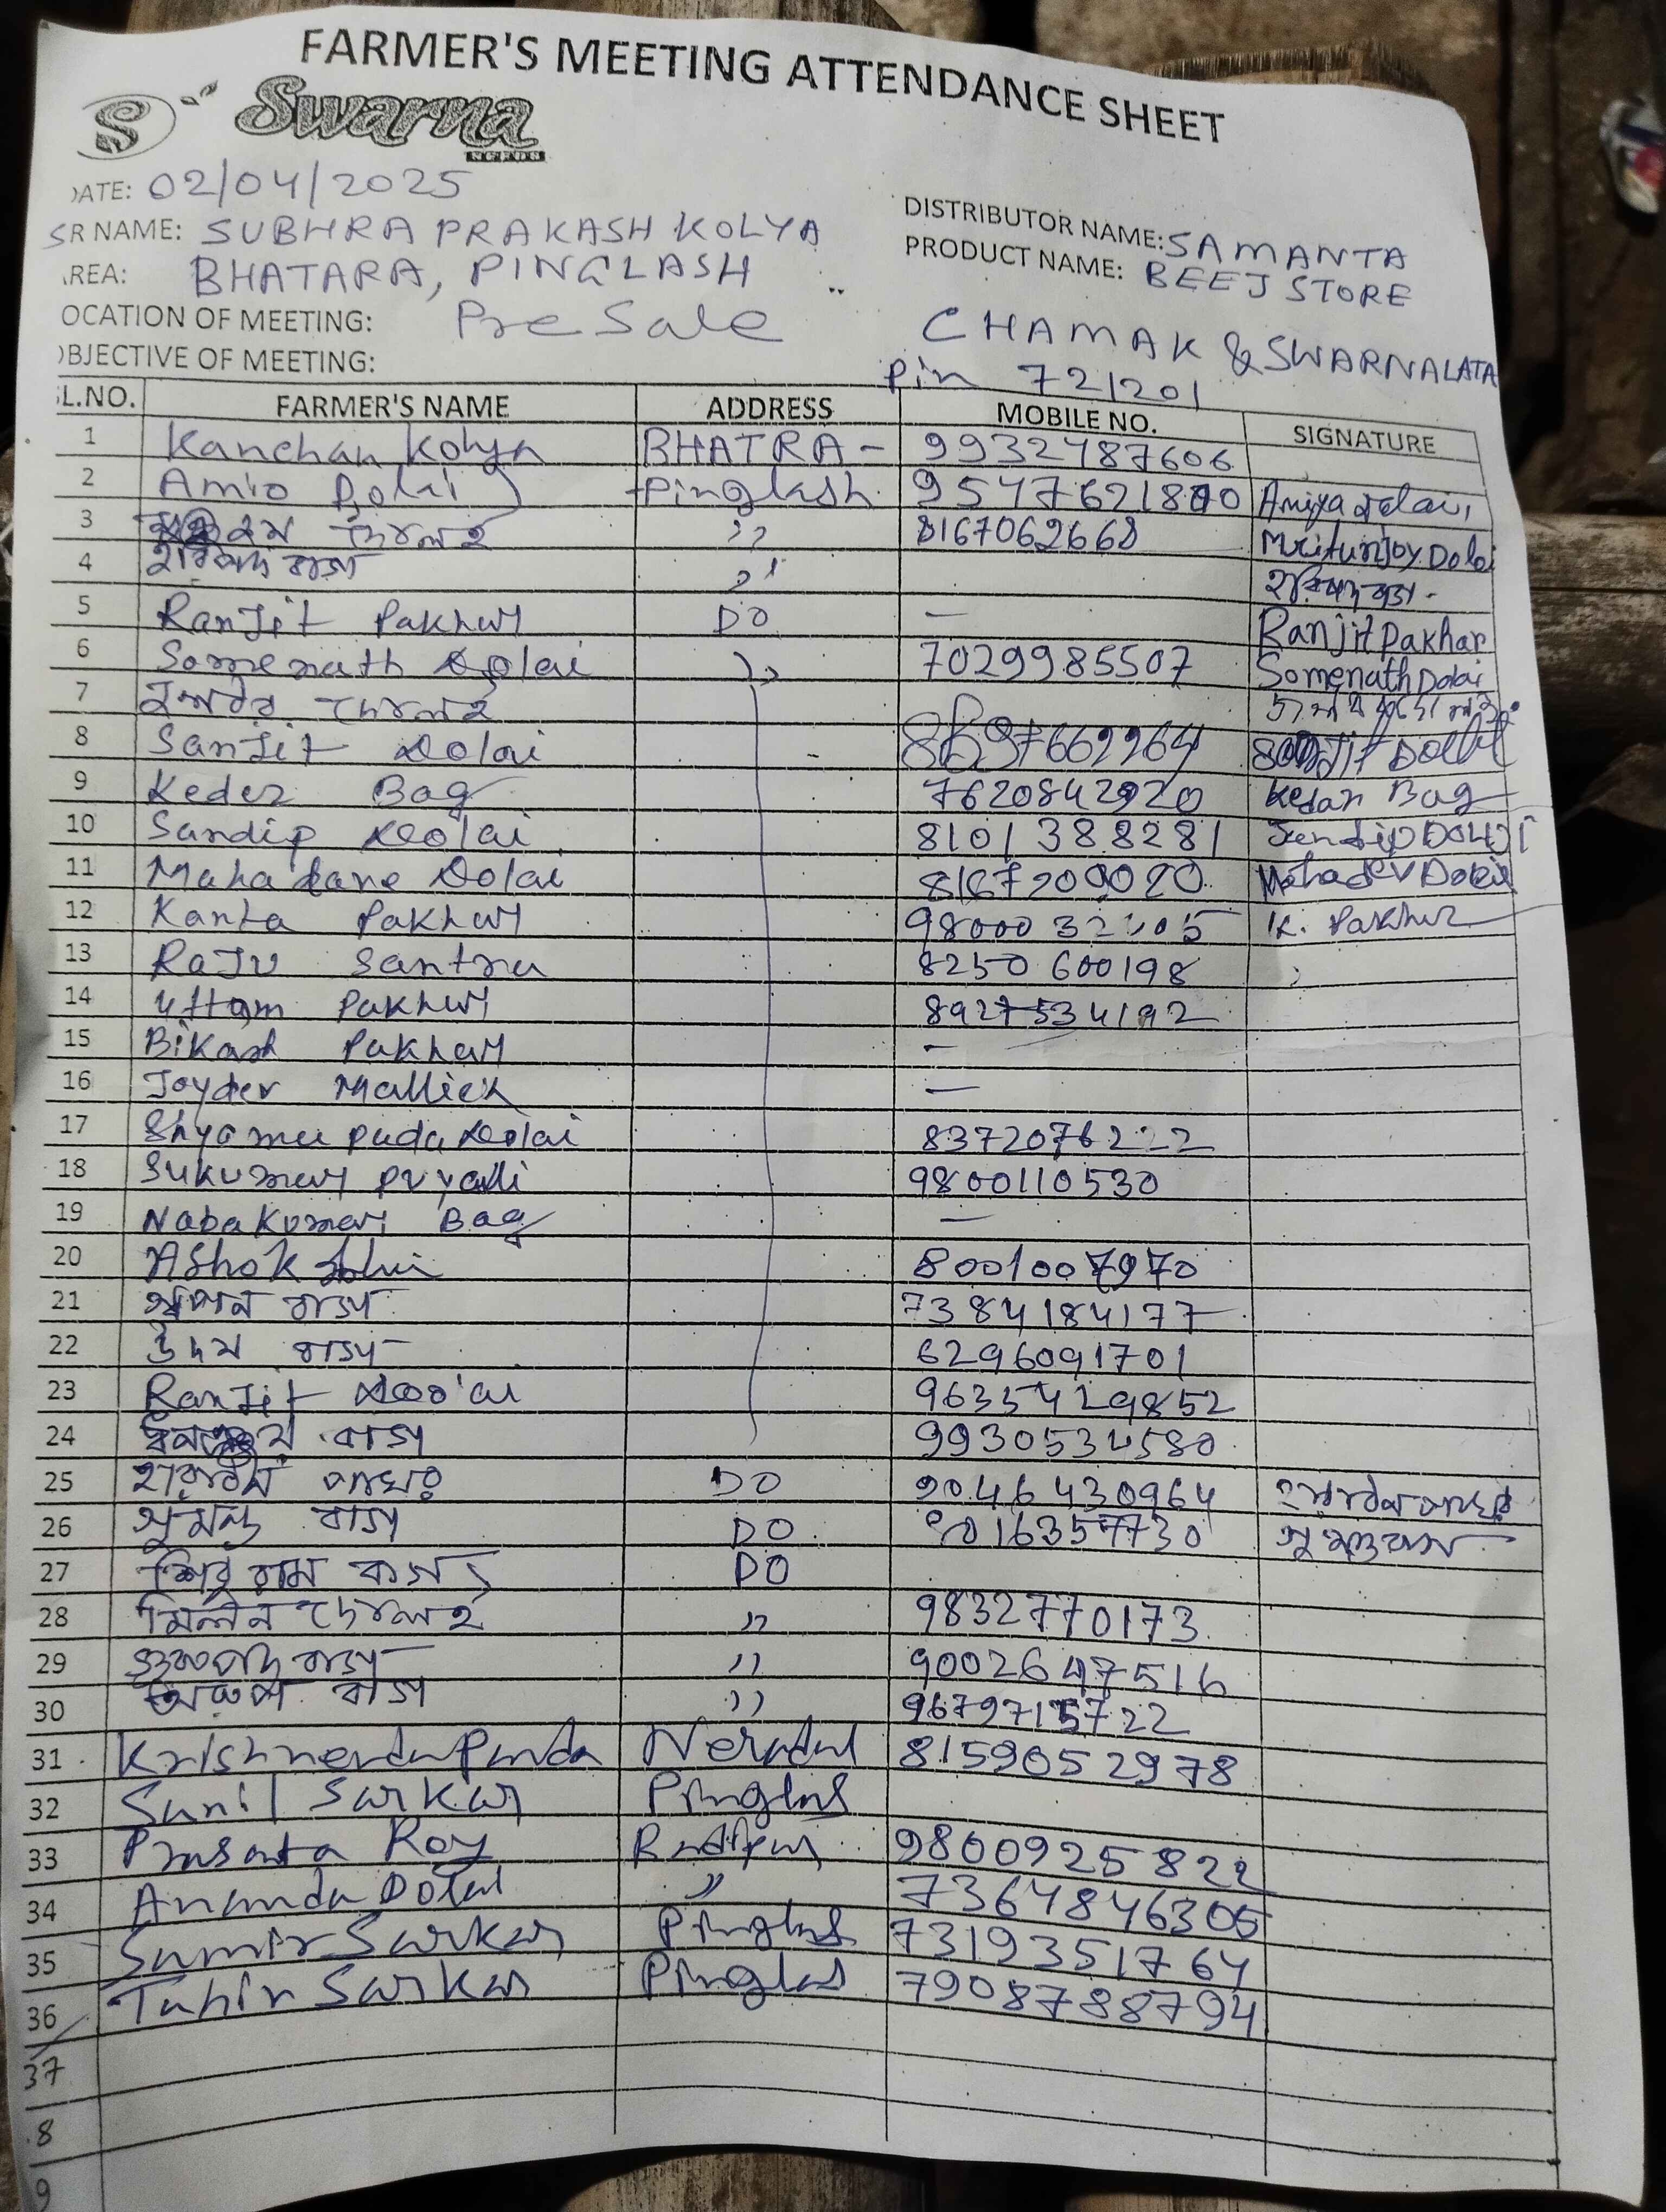 FARMER'S MEETING ATTENDANCE SHEET
S Swarna
DATE: 02/04/2025
SR NAME: SUBHRA PRAKASH KOLYA
DISTRIBUTOR NAME: SAMANTA BEEJ STORE
AREA: BHATARA, PINGLASH
PRODUCT NAME:
LOCATION OF MEETING: Pre Sale
CHAMAK & SWARNALATA
OBJECTIVE OF MEETING:
Pin 721201
SL.NO. FARMER'S NAME ADDRESS MOBILE NO. SIGNATURE
1 Kanchan Kolya BHATRA - 9932487606
2 Amio Dolai Pinglash 95476218 Amiya Dolai
3 দোলই ,, 8167062668 Mritunjoy Dolai
4 হরিপদ বাগ ,, হরিপদ বাগ
5 Ranjit Pakhar DO — Ranjit Pakhar
6 Somenath Dolai ,, 7029985507 Somenath Dolai
7 দোলই
8 Sanjit Dolai 8697662264 Sanjit Dolai
9 Keder Bag 7620842920 Kedar Bag
10 Sandip Dolai 8101388281 Sandip Dolai
11 Dolai 8167209020 Mahadev Dolai
12 Kanta Pakhar 980003 K. Pakhar
13 Raju Santra 8250600198
14 Uttam Pakhar 8927534192
15 Bikash Pakhar —
16 Joydev Mallick —
17 Shyama pada Dolai 8372076222
18 Sukumar 9800110530
19 Naba Kumar Bag —
20 Ashok 8001007970
21 স্বপন বাগ 7384184177
22 উদয় বাগ 6296091701
23 Ranjit Dolai 9635429852
24 ধনঞ্জয় বাগ 9930534580
25 হারাধন পাখর DO 9046430964 হারাধন পাখর
26 সুমন্ত বাগ DO 9016357730 সুমন্ত বাগ
27 শিবু রাম বাগ DO
28 মিলন দোলই ,, 9832770173
29 গুরুপদ বাগ ,, 9002647516
30 অরুপ বাগ ,, 9679715722
31 Krishnendu Panda 8159052978
32 Sunil Sarkar Pinglas
33 Prasanta Roy 9800925822
34 Ananda Dolai ,, 7364846305
35 Samir Sarkar Pinglas 7319351764
36 Sarkar Pinglas 7908788794
37
8
9